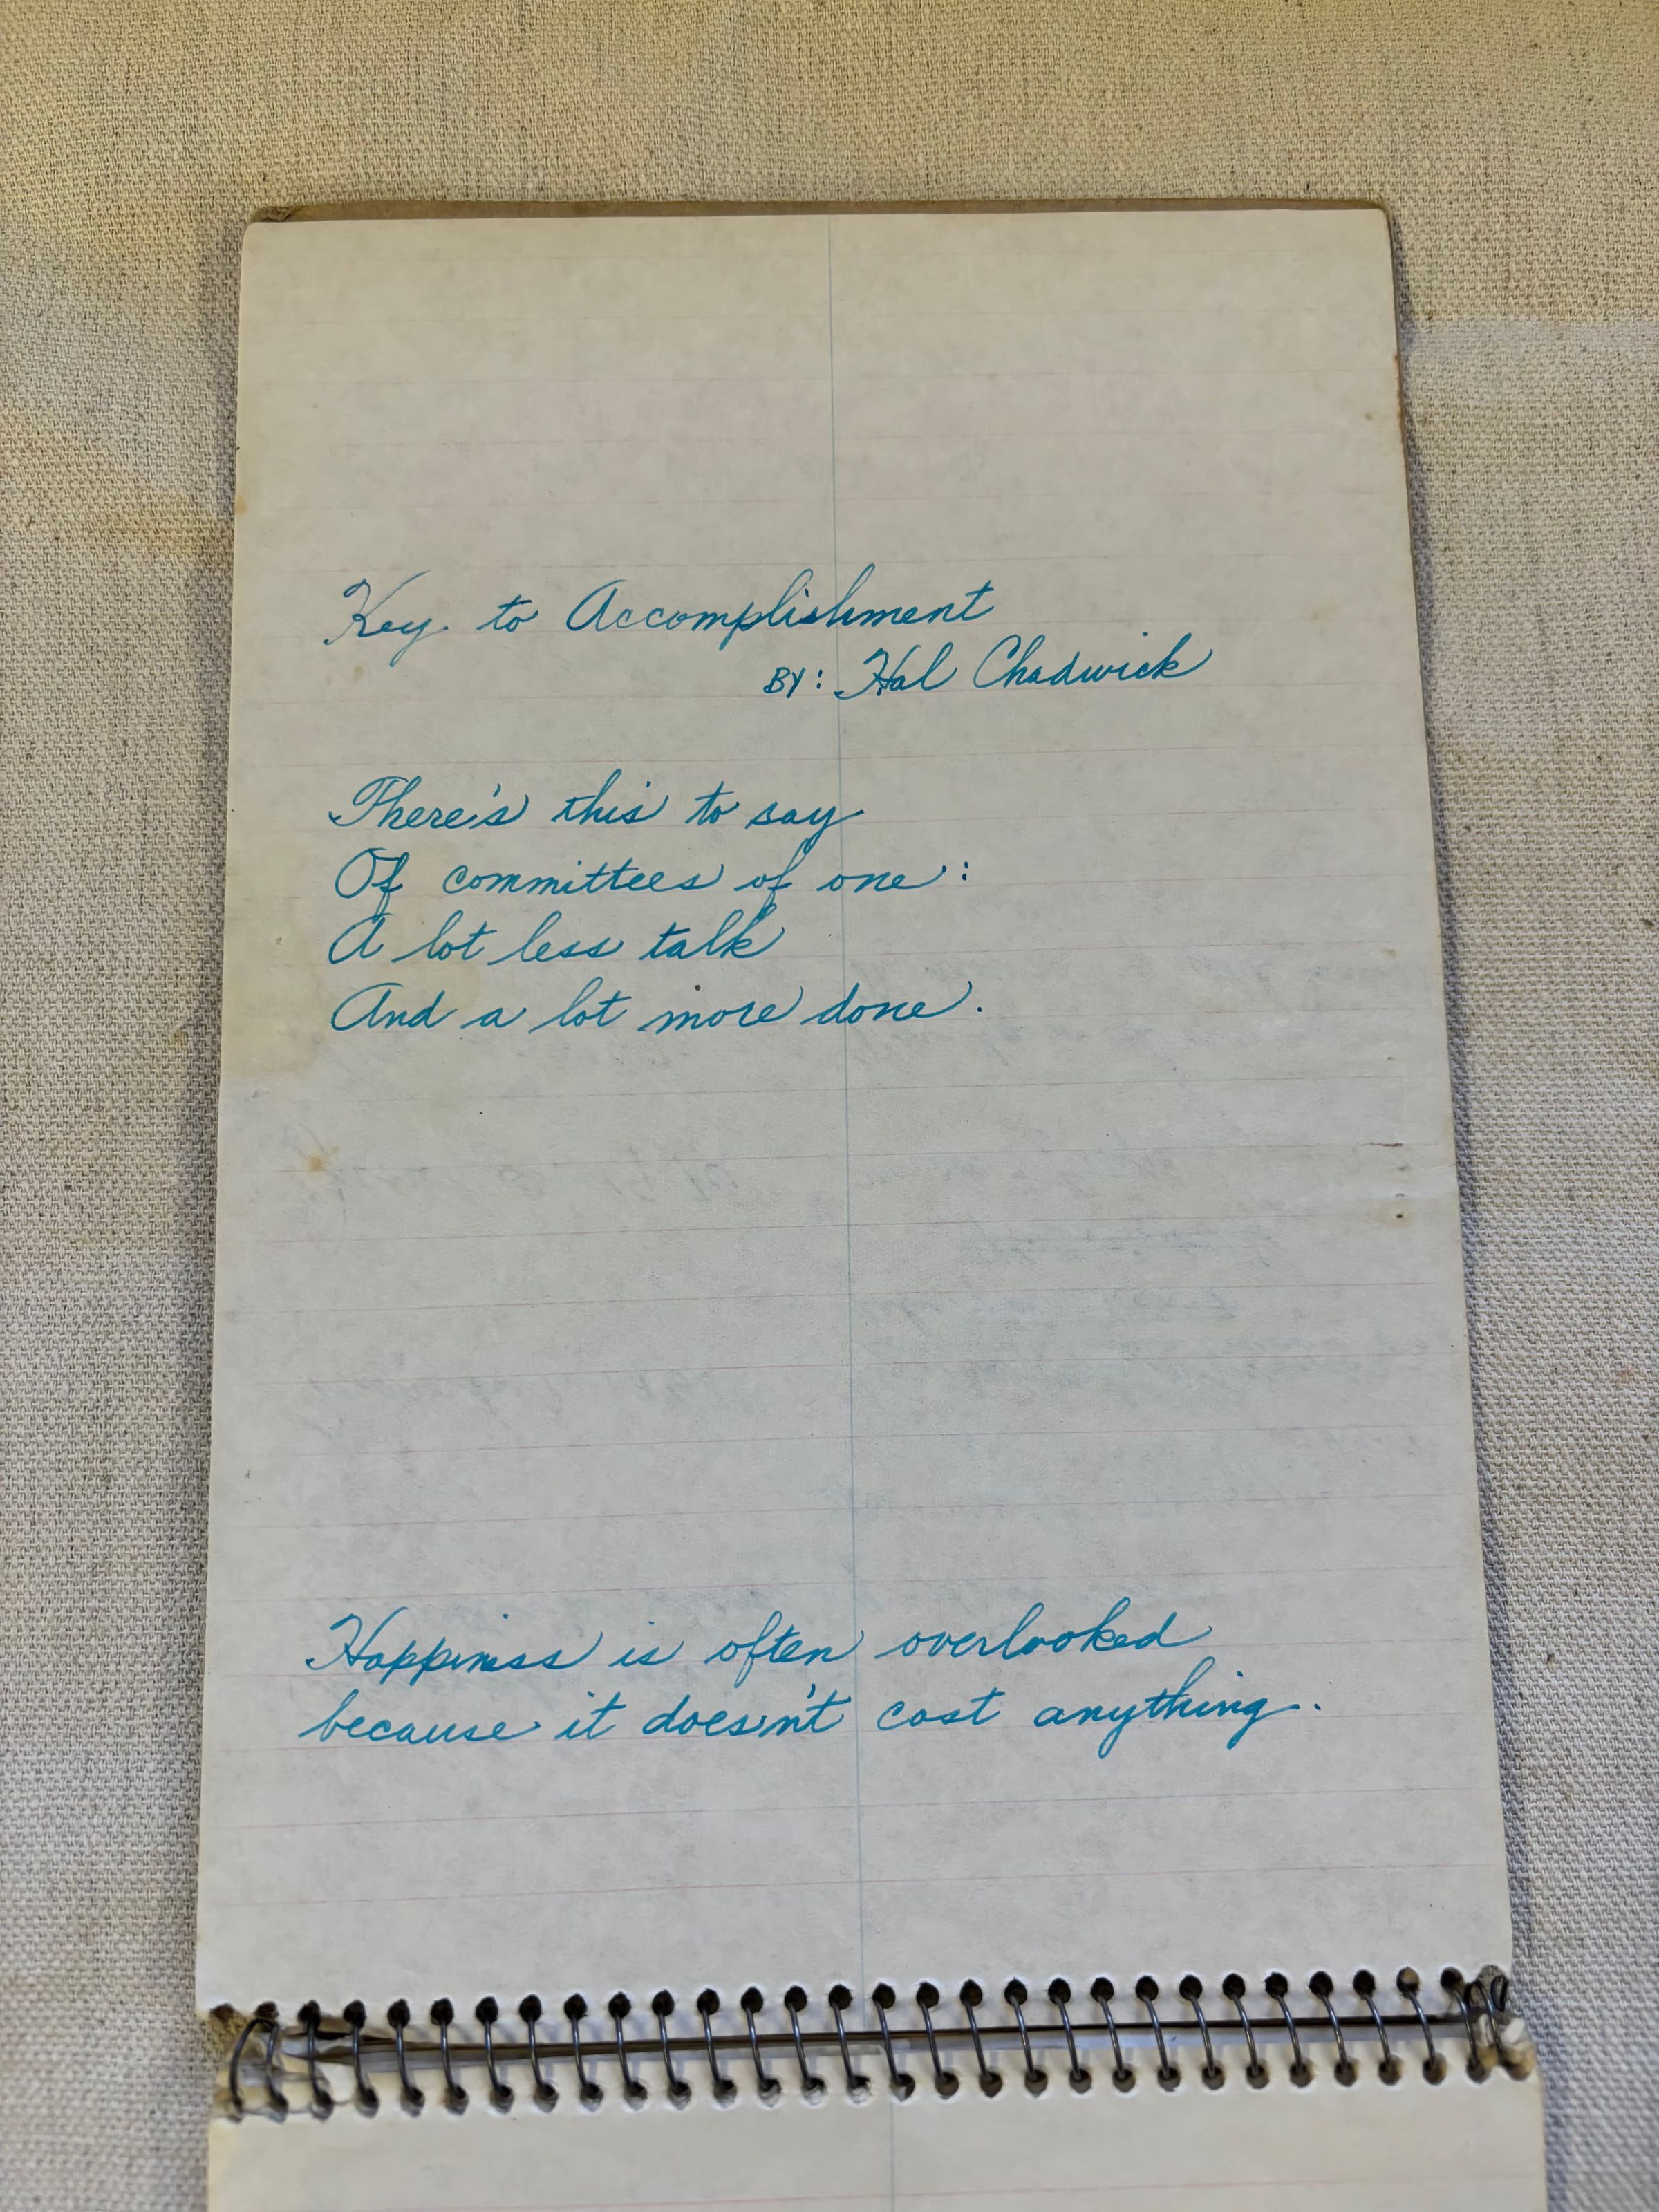 Key to Accomplishment
BY: Hal Chadwick
There's this to say
Of committees of one:
A lot less talk
And a lot more done.
Happiness is often overlooked
because it doesn't cost anything.